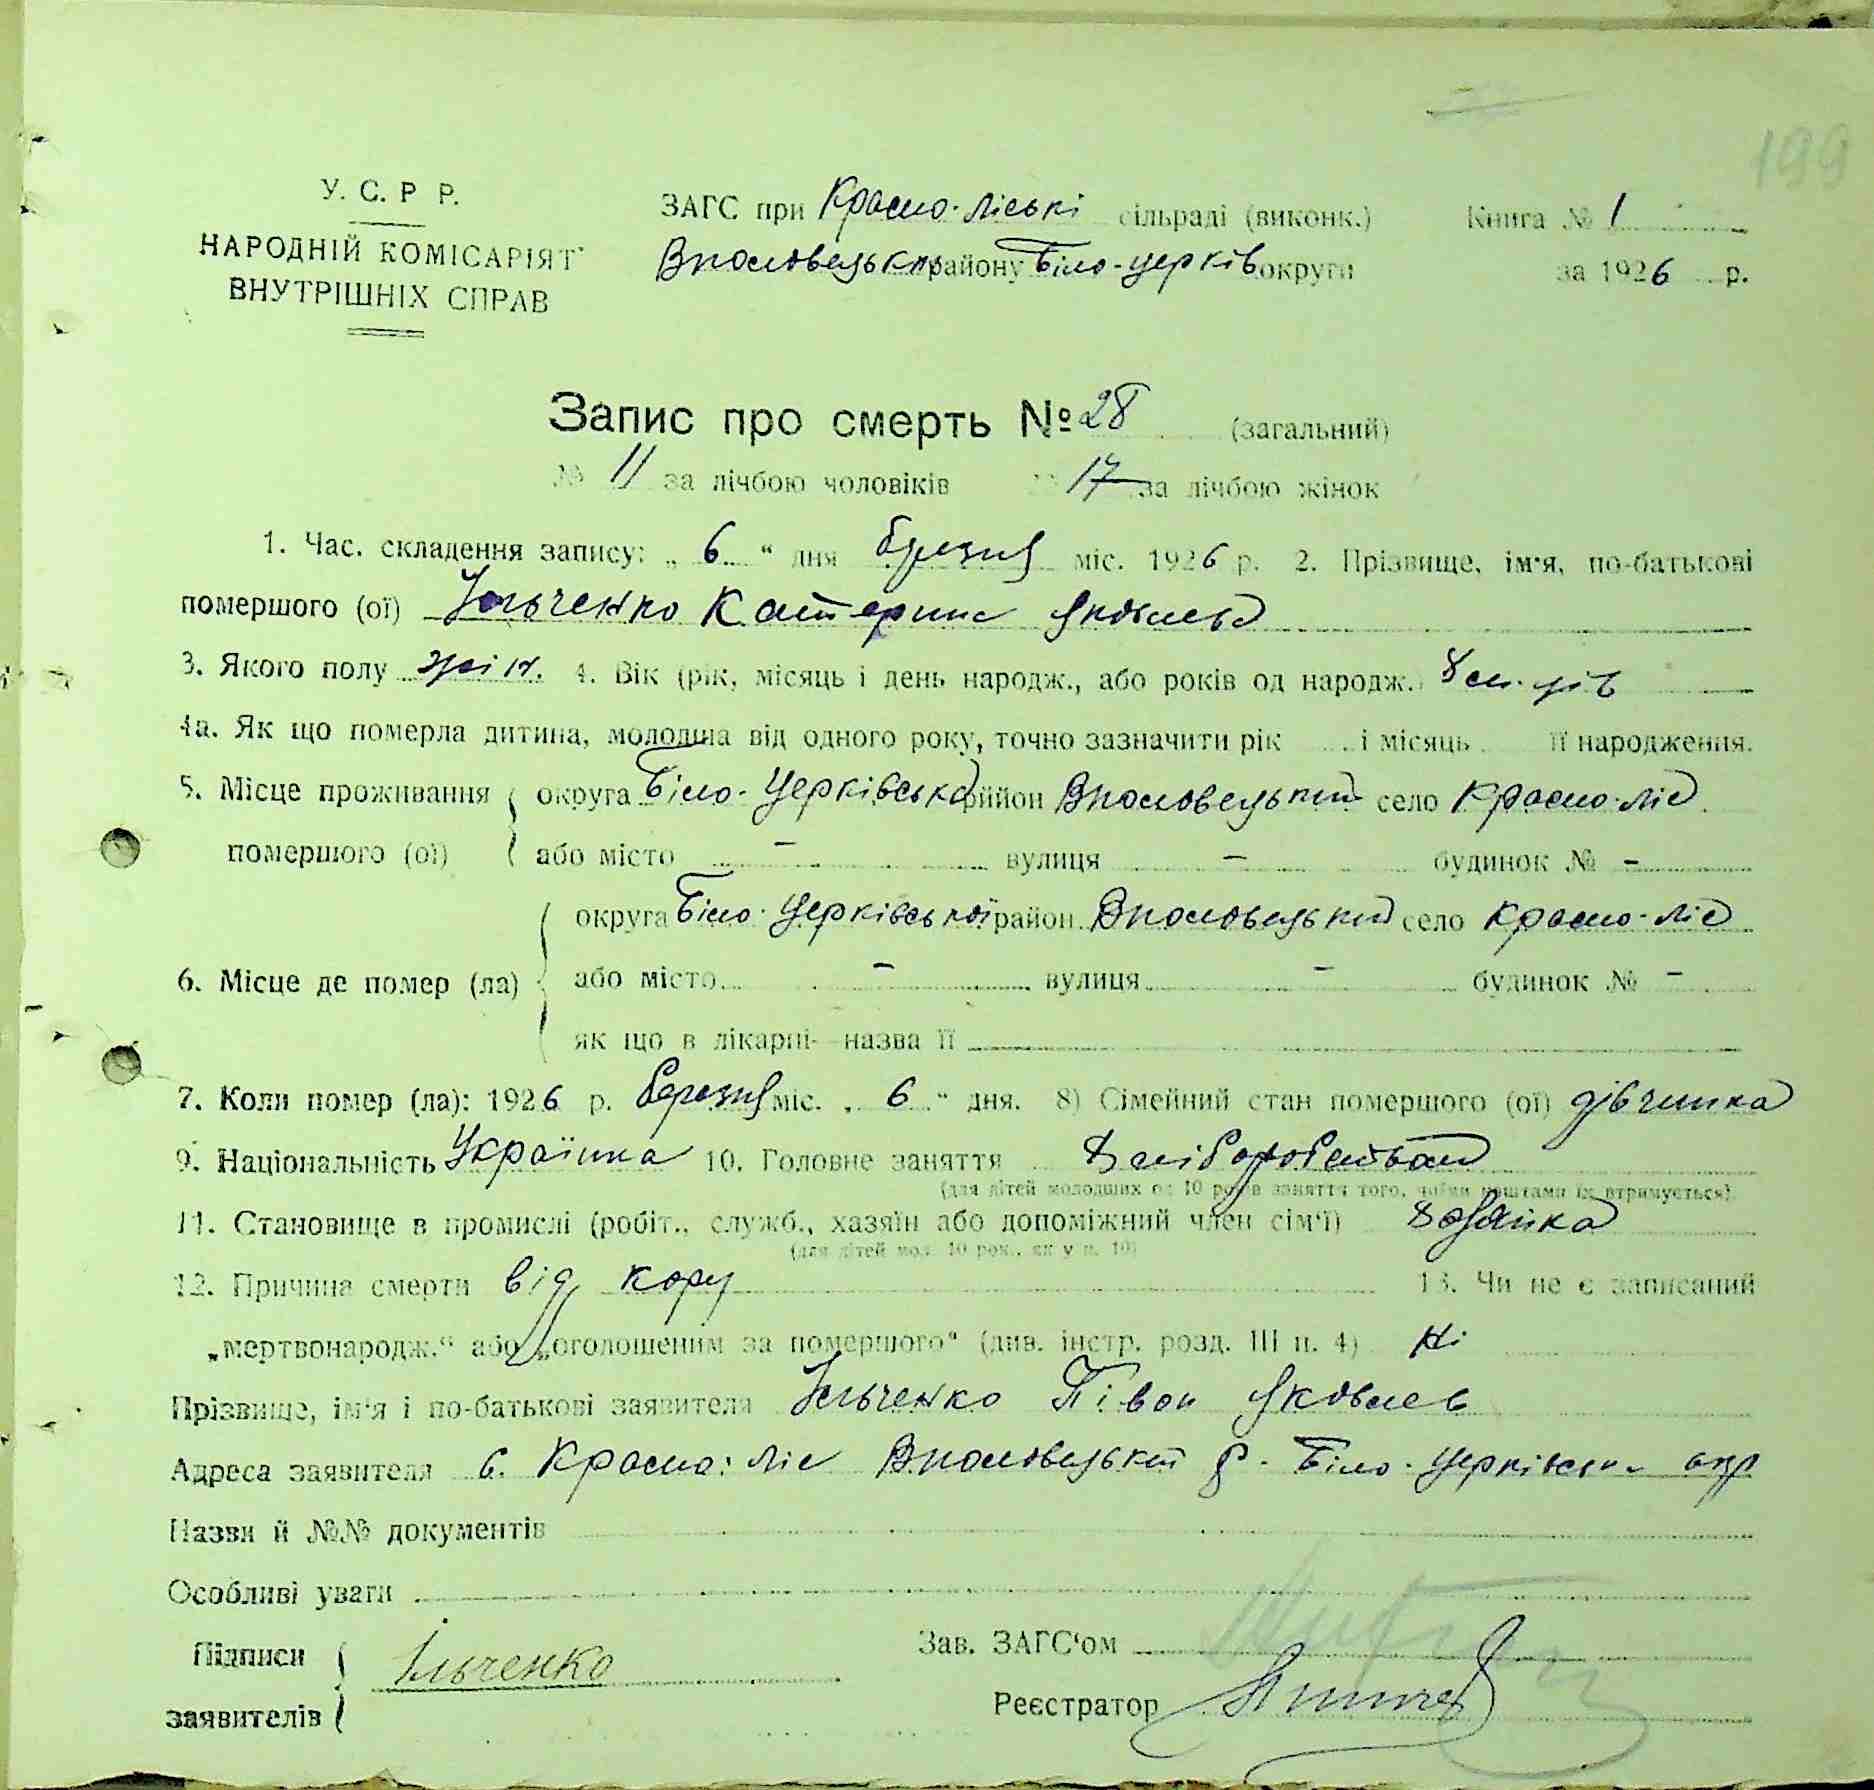 199
У. С. Р Р.
НАРОДНІЙ КОМІСАРІЯТ
ВНУТРІШНІХ СПРАВ
ЗАГС при Красно-Ліські сільраді (виконк.) Книга № 1
району Біло-церків округи за 1926 р.
Запис про смерть № 28 (загальний)
№ 11 за лічбою чоловіків 17 за лічбою жінок
1. Час. складення запису: „ 6 “ дня березня міс. 1926 р. 2. Прізвище, ім'я, по-батькові
помершого (ої) Ільченко Катерина Яковлевa
3. Якого полу жін. 4. Вік (рік, місяць і день народж., або років од народж.)
4а. Як що померла дитина, молодша від одного року, точно зазначити рік і місяць її народження.
5. Місце проживання округа Біло-Церківська район село Красно-ліс
помершого (ої) або місто - вулиця - будинок № -
округа Біло-Церківської район село Красно-ліс
6. Місце де помер (ла) або місто - вулиця - будинок № -
як що в лікарні- назва її
7. Коли помер (ла): 1926 р. березня міс. „ 6 “ дня. 8) Сімейний стан помершого (ої) дівчинка
9. Національність Українка 10. Головне заняття
(для дітей молодших од 10 років заняття того, чиїми коштами їх втримується)
11. Становище в промислі (робіт., служб., хазяїн або допоміжний член сім'ї) хазяйка
(для дітей мол. 10 рок., як у п. 10)
12. Причина смерти від кору 13. Чи не є записаний
„мертвонародж.“ або „оголошеним за померлого“ (див. інстр. розд. III п. 4) Ні
Прізвище, ім'я і по-батькові заявителя Ільченко Півон Яковлев
Адреса заявителя с. Красно-Ліс р. Біло-Церківськ окр
Назви й №№ документів
Особливі уваги
Підписи Ільченко Зав. ЗАГС'ом
заявителів Реєстратор